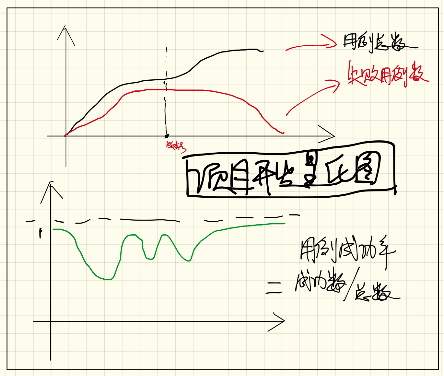 用例总数
失败用例数
项目开发量氏图
1
用例成功率
= 成功数/总数